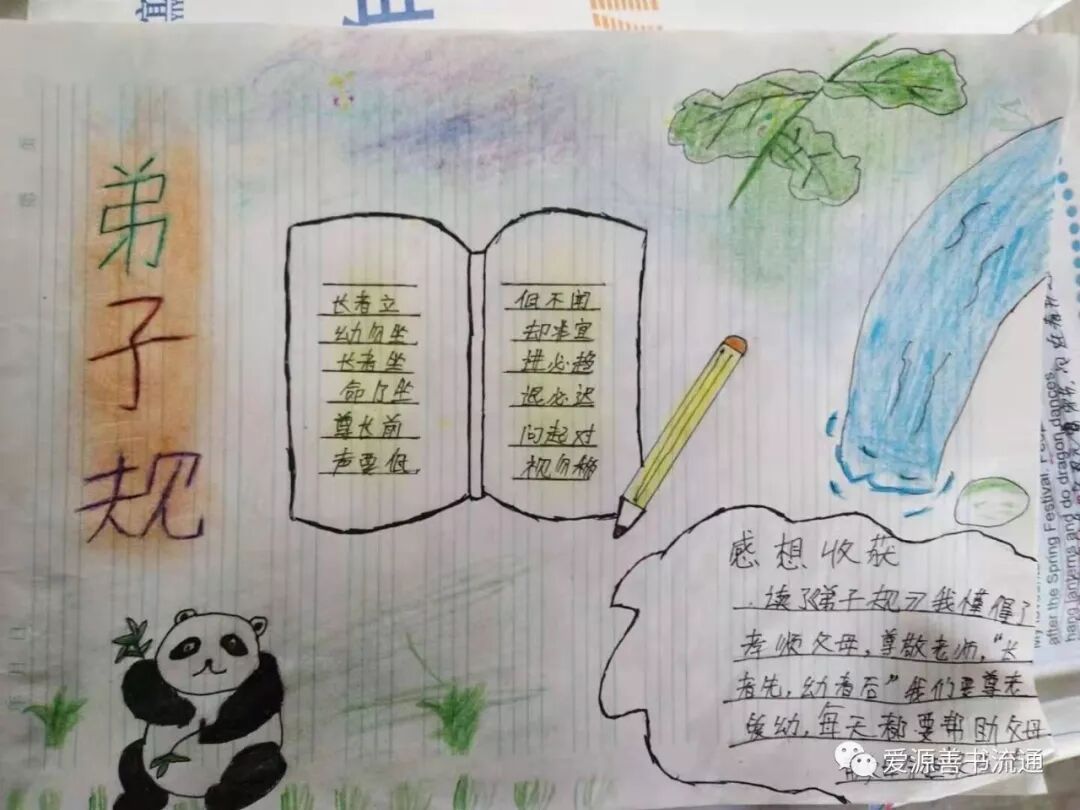 弟子规
长者立
幼勿坐
长者坐
命乃坐
尊长前
声要低
低不闻
却非宜
进必趋
退必迟
问起对
视勿移
感想收获
读了《弟子规》我懂得了
孝顺父母，尊敬老师，“长
者先，幼者后”我们要尊老
爱幼，每天都要帮助父母
爱源善书流通
after the Spring Festival.
hang lanterns and do dragon dances